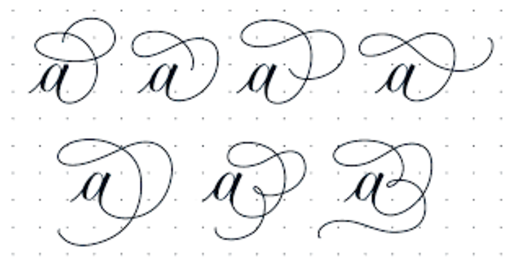 a a a a
a a a